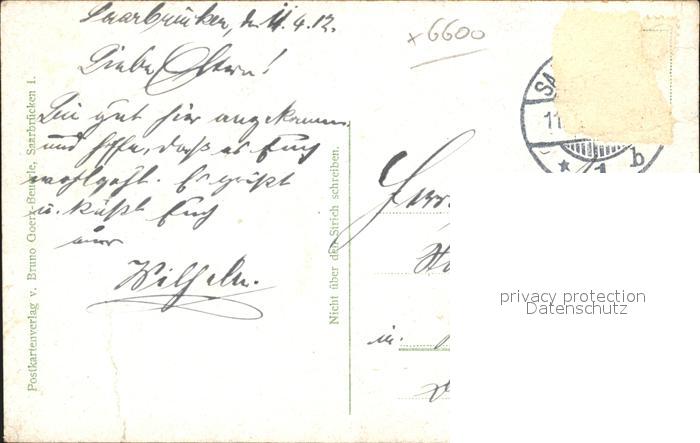 Saarbrücken, d. 11.4.12.
Liebe Eltern!
Bin gut hier angekommen
und hoffe, daß es Euch
wohlgeht. Es grüßt
u. küßt Euch
Wilhelm.
Postkartenverlag v. Bruno Goerz-Beuerle, Saarbrücken 1.
Nicht über den Strich schreiben.
x 6600
SA
11
* 1 b
Herr
in
privacy protection
Datenschutz